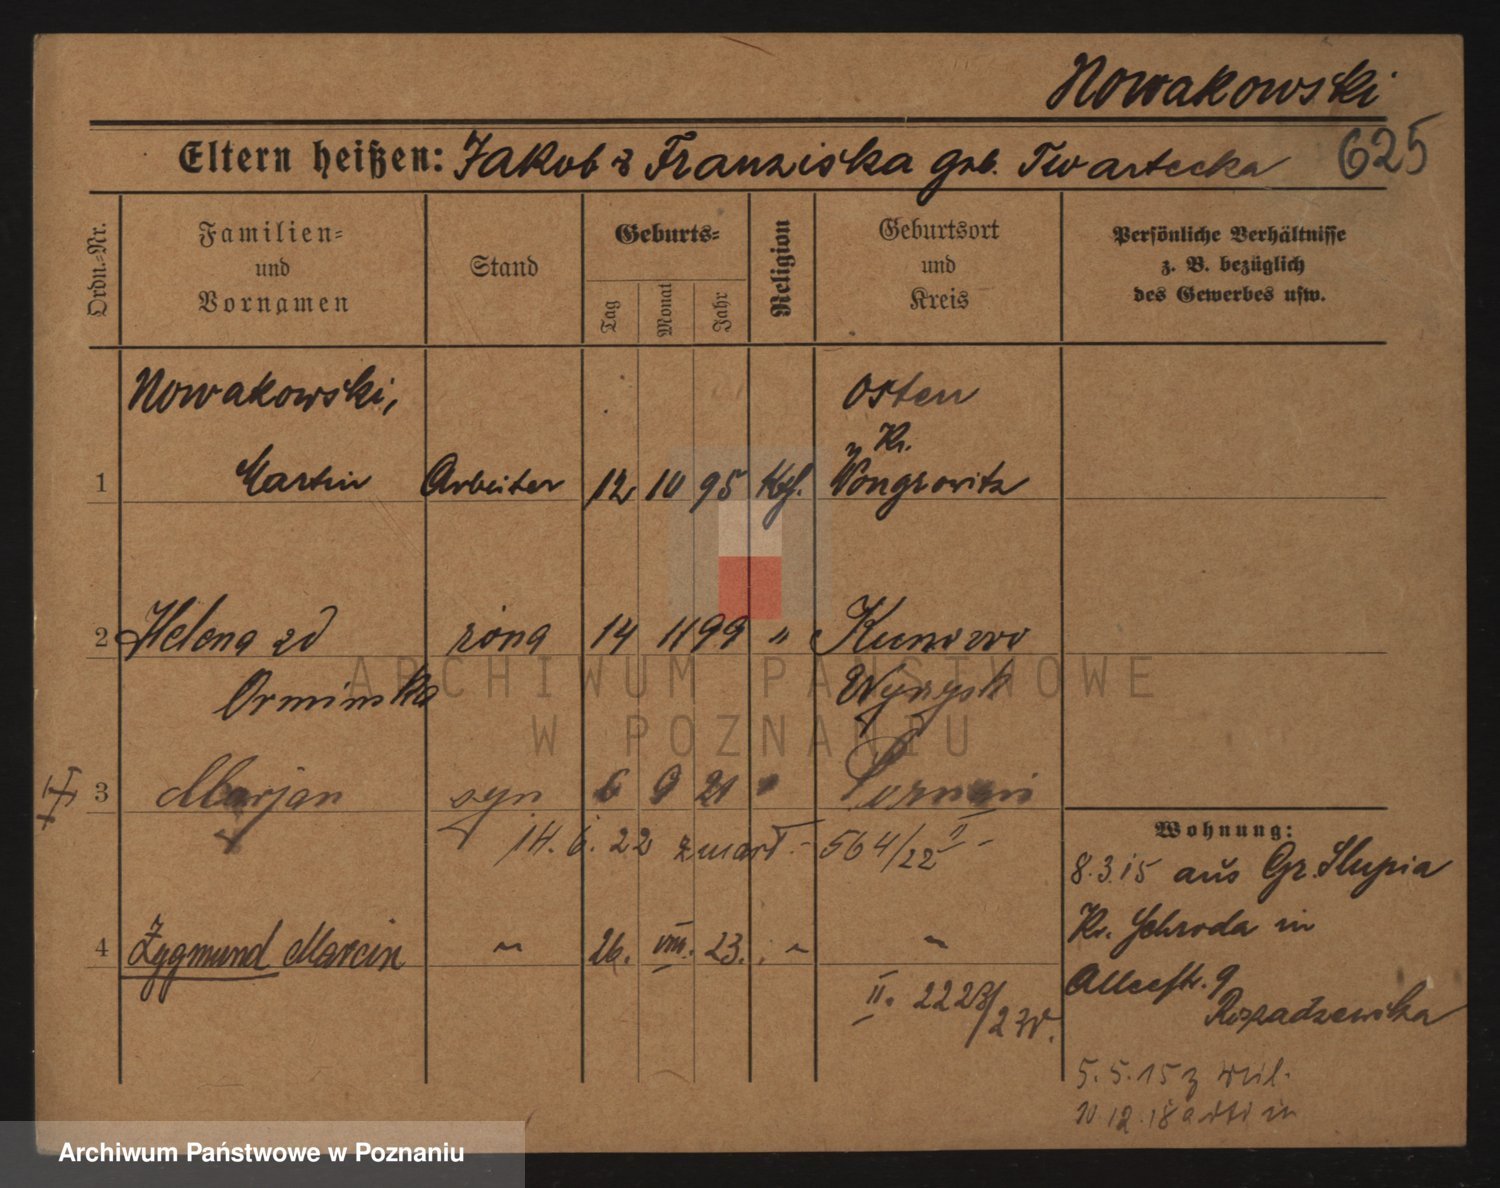 Nowakowski
Eltern heißen: Jakob & Franziska geb. Twartecka 625
Ordn.-Nr.
Familien-
und
Vornamen
Stand
Geburts-
Tag
Monat
Jahr
Religion
Geburtsort
und
Kreis
Persönliche Verhältnisse
z. B. bezüglich
des Gewerbes usw.
Nowakowski,
Osten
Kr.
1 Martin Arbeiter 12 10 95 Kth. Wongrowitz
2 Helena zd żona 14 11 99 " Kunowo
Ormińska Wyrzysk
3 Marjan syn 6 9 21 " Poznań
14. 6. 22 zmarł - 564/22 II -
4 Zygmund Marcin ~ 26. VIII. 23. ~ ~
II. 2228/23
Wohnung:
8.3.15 aus Gr. Slupia
Kr. Schroda in
Alleestr. 9
5.5.15 z
10.12.18
ARCHIWUM PAŃSTWOWE
W POZNANIU
Archiwum Państwowe w Poznaniu